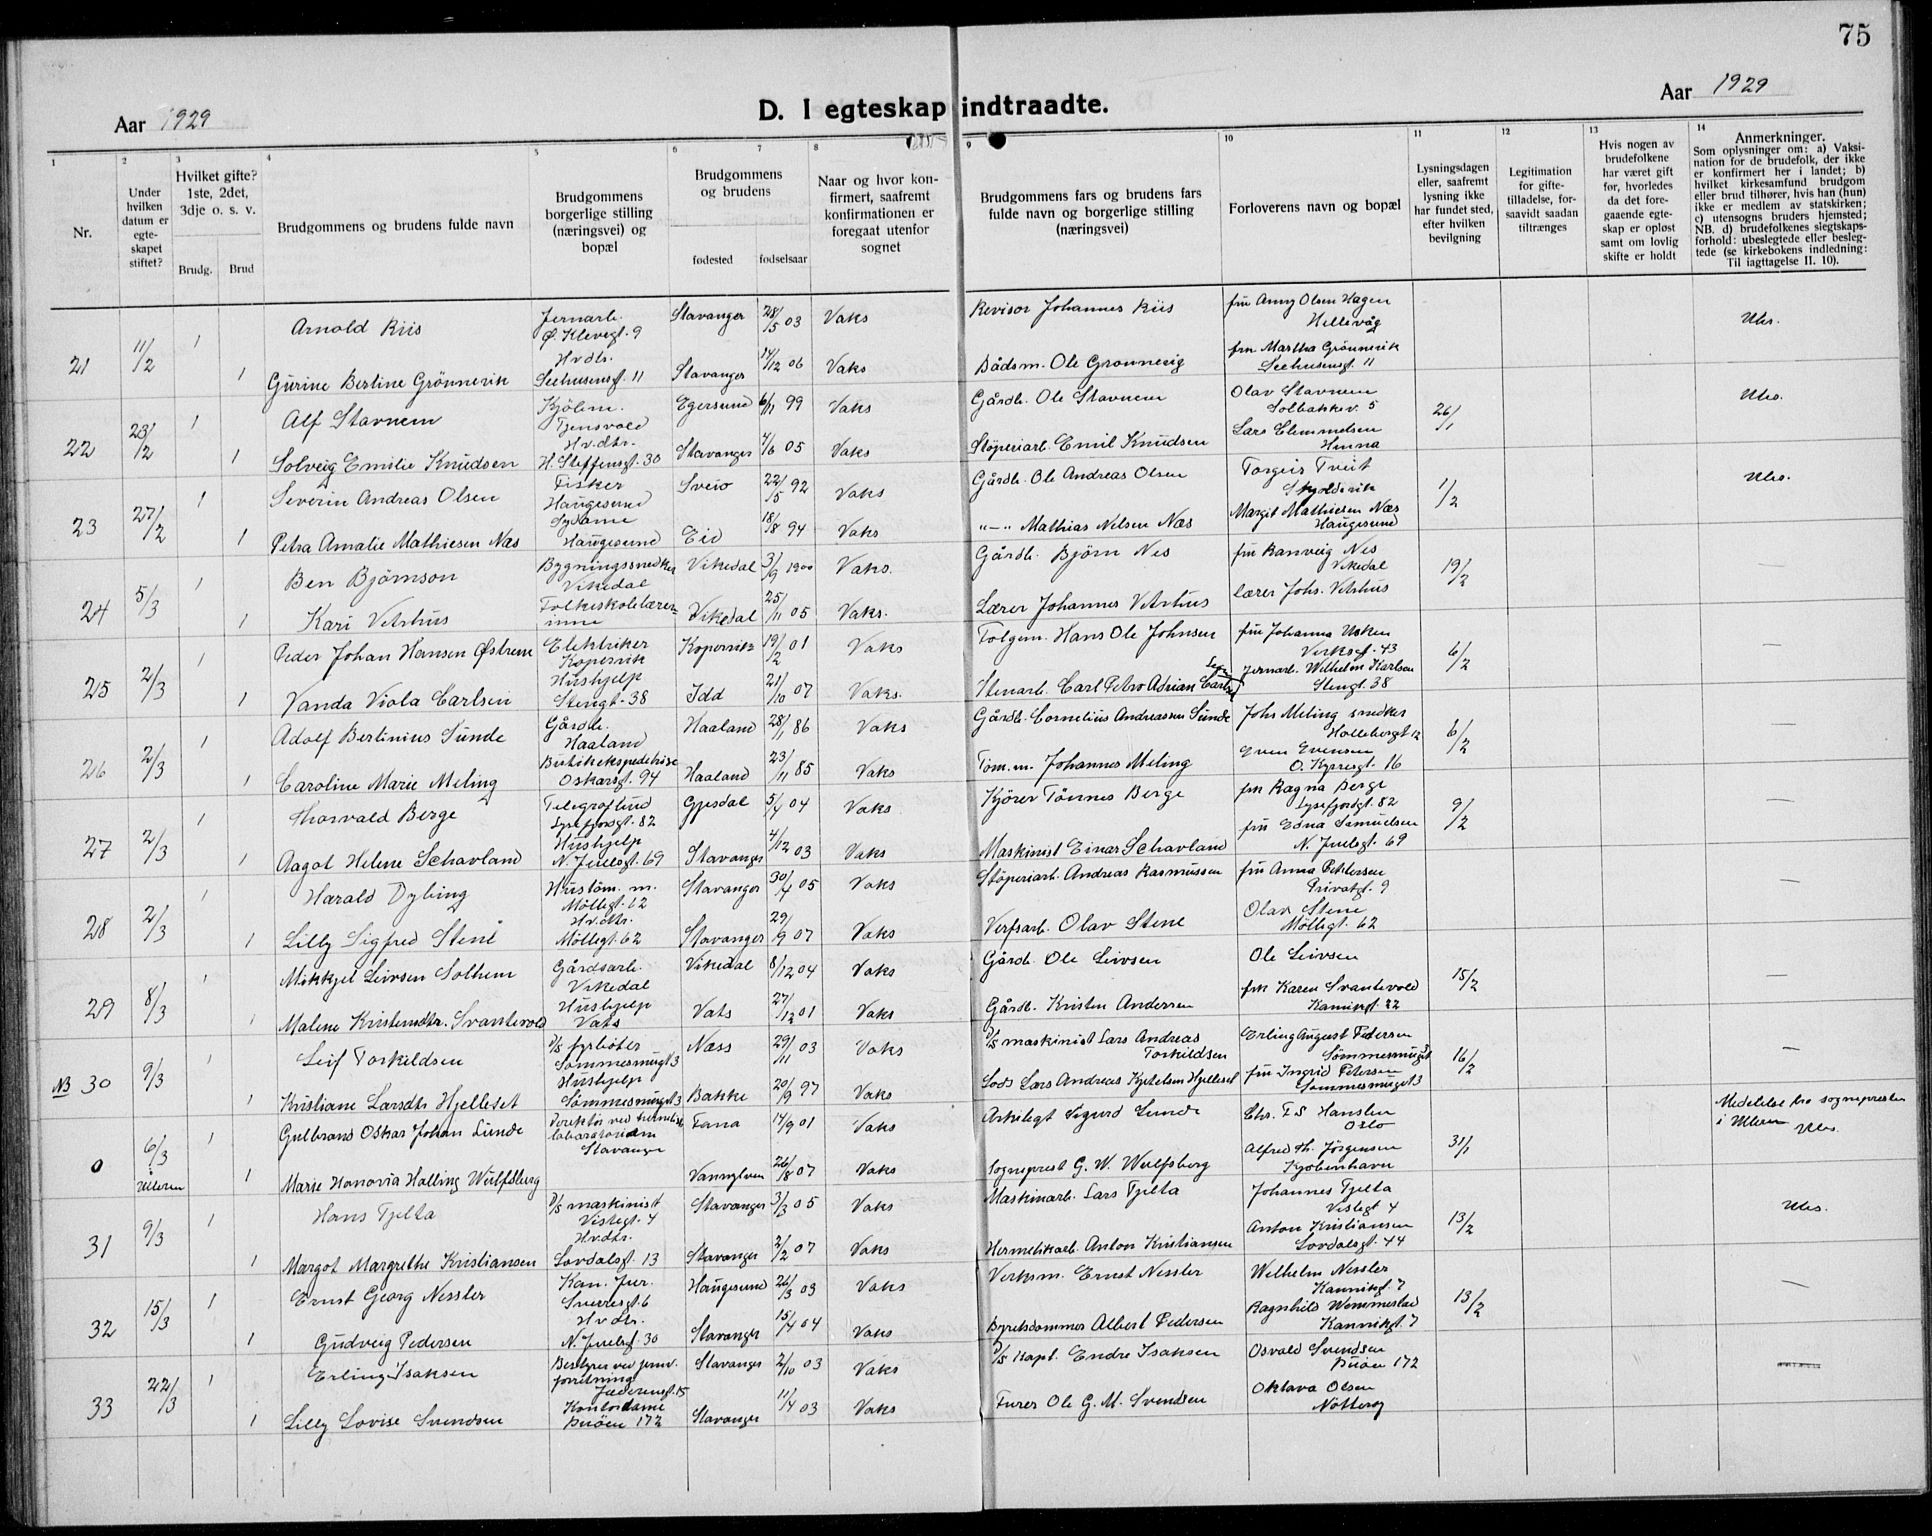 75
Aar 1929
D. I egteskap indtraadte.
Aar 1929
1 2 3 4 5 6 7 8 9 10 11 12 13 14
Nr.
Under hvilken datum er egteskapet stiftet?
Hvilket gifte? 1ste, 2det, 3dje o. s. v.
Brudg. Brud
Brudgommens og brudens fulde navn
Brudgommens borgerlige stilling (næringsvei) og bopæl
Brudgommens og brudens
fødested fødselsaar
Naar og hvor konfirmert, saafremt konfirmationen er foregaat utenfor sognet
Brudgommens fars og brudens fars fulde navn og borgerlige stilling (næringsvei)
Forloverens navn og bopæl
Lysningsdagen eller, saafremt lysning ikke har fundet sted, efter hvilken bevilgning
Legitimation for giftetilladelse, forsaavidt saadan tiltrænges
Hvis nogen av brudefolkene har været gift før, hvorledes da det foregaaende egteskap er opløst samt om lovlig skifte er holdt
Anmerkninger.
Som oplysninger om: a) Vaksination for de brudefolk, der ikke er konfirmert her i landet; b) hvilket kirkesamfund brudgom eller brud tilhører, hvis han (hun) ikke er medlem av statskirken; c) utensogns bruders hjemsted; NB. d) brudefolkenes slegtskapsforhold: ubeslegtede eller beslegtede (se kirkebokens indledning: Til iagttagelse II. 10).
21 11/2 1 Arnold Riis Jernarb. Ø. Klevegt. 9 Stavanger 28/5 03 Vaks Revisor Johannes Riis fru Anny Olsen Hagen Hillevåg Ubs.
1 Gurine Bertine Grönnevik Hv.dtr. Seehusensgt. 11 Stavanger 14/12 06 Vaks Bådsm. Ole Gronnevig frk Martha Grönnevik Seehusensgt. 11
22 23/2 1 Alf Stavnem Kjölm. Tjensvold Egersund 6/11 99 Vaks Gårdb. Ole Stavnem Olav Stavnem Solbakkev. 5 26/1 Ubs.
1 Solveig Emilie Knudsen Hv.dtr. H. Steffensgt. 30 Stavanger 4/6 05 Vaks Stöperiarb. Emil Knudsen Lars Clemmetsen Hinna
23 27/2 1 Severin Andreas Olsen Fisker Haugesund Sveio 22/5 92 Vaks Gårdb. Ole Andreas Olsen Torgeir Tveit Skjoldevik 1/2 Ubs.
1 Petra Amalie Mathiesen Næs Sydame Haugesund Eid 18/8 94 Vaks "—" Mathias Nilsen Næs Margit Mathiesen Næs Haugesund
24 5/3 1 Ben Björnson Bygningssnedker Vikedal Vikedal 3/9 1900 Vaks. Gårdb. Bjørn Nes fru Ranveig Nes Vikedal 19/2 —
1 Kari Vetrhus Folkeskolelærerinne Vikedal 25/11 05 Vaks. Lærer Johannes Vetrhus Lærer Johs. Vetrhus
25 2/3 1 Peder Johan Hansen Østrem Elektriker Kopervik Kopervik 19/2 01 Vaks Tolgem. Hans Ole Johnsen fru Johanna Usken Verksgt. 43 6/2 —
1 Vanda Viola Carlsen Hushjelp Stengt. 38 Idd 21/10 07 Vaks. Stenarb. Carl Petro Adrian Carlsen Jernarb. Wilhelm Karlsen Stengt. 38
26 2/3 1 Adolf Bertinius Sunde Gårdb. Haaland Haaland 28/1 86 Vaks Gårdb. Cornelius Andreassen Sunde Johs Meling snedker Holbergsgt 12 6/2 —
1 Caroline Marie Meling Butikekspeditrise Oskarsgt. 94 Haaland 23/11 85 Vaks Töm.m. Johannes Meling Even Evensen O. Kyrresgt. 16
27 2/3 1 Thorvald Berge Telegrafbud Lysefjordgt. 82 Gjesdal 5/4 04 Vaks Kjörer Tönnes Berge frk Ragna Berge Lysefjordgt. 82 9/2 —
1 Aagot Helene Schavland Hushjelp N. Juelsgt. 69 Stavanger 4/12 03 Vaks Maskinist Einar Schavland fru Edna Samuelsen N. Juelsgt. 69
28 2/3 1 Harald Dybing Hustöm. m. Möllegt. 62 Stavanger 30/4 05 Vaks Stöperiarb. Andreas Rasmussen fru Anna Pettersen Privatgt. 9 —
1 Lilly Sigfred Stene Hv.dtr. Möllegt. 62 Stavanger 29/9 07 Vaks Verfsarb. Olav Stene Olav Stene Möllegt. 62
29 8/3 1 Mikkjel Leivsen Solheim Gårdsarb. Vikedal Vikedal 8/12 04 Vaks Gårdb. Ole Leivsen Ole Leivsen 15/2 —
1 Malene Kristendtr. Svantevold Hushjelp Vats Vats 27/12 01 Vaks Gårdb. Kristen Andersen frk Karen Svantevold Kannikgt. 22
NB 30 9/3 1 Leif Torkildsen D/S fyrböter Sömmesmugt 3 Næss 29/11 03 Vaks D/S maskinist Lars Andreas Torkildsen Erling August Pedersen Sömmesmugt 3 16/2 —
1 Kristiane Larsdtr Hjelleset Hushjelp Sömmesmuget 3 Bakke 20/9 97 Vaks Lods Lars Andreas Kjetelsen Hjelleset fru Ingrid Petersen Sömmesmuget 3
0 6/3 i Ulleren 1 Gulbrand Oskar Johan Lunde Direktör ved hermetikk laboratorium Stavanger Fana 14/9 01 Vaks Arkitegt Sigurd Lunde Chr. F S Hansten Oslo 31/1 Meddelelse fra sognepresten i Ulleren Ubs.
1 Marie Honoria Halling Wulfsberg Vannylven 26/8 07 Vaks Sogneprest G. W. Wulfsberg Alfred Th. Jørgensen Kjøbenhavn
31 9/3 1 Hans Tjelta D/S maskinist Vistegt. 4 Stavanger 3/3 05 Vaks Maskinarb. Lars Tjelta Johannes Tjelta Vistegt 4 13/2 Ubs.
1 Margot Margrethe Kristiansen Hv.dtr. Lovdalsgt. 13 Stavanger 2/2 07 Vaks Hermetikarb. Anton Kristiansen Anton Kristiansen Lovdalsgt. 44
32 15/3 1 Ernst Georg Nessler Kan. Jur. Sverresgt. 6 Haugesund 26/3 03 Vaks Verksm. Ernst Nessler Wilhelm Nessler Kannikgt. 7 13/2 —
1 Gudveig Pedersen Hv.dtr. N. Juelsgt. 30 Stavanger 15/4 04 Vaks Byretsdommer Albert Pedersen Ragnhild Wemmestad Kannikgt. 7
33 22/3 1 Erling Isaksen Bestyrer ved jernv. forretning Jæderensgt. 15 Stavanger 2/10 03 Vaks D/S Kapt. Endre Isaksen Osvald Svendsen Buöen 172 —
1 Lilly Lovise Svendsen Kontordame Buöen 172 Stavanger 11/4 03 Vaks Furer Ole G. M. Svendsen Oktava Olsen Nötteröy